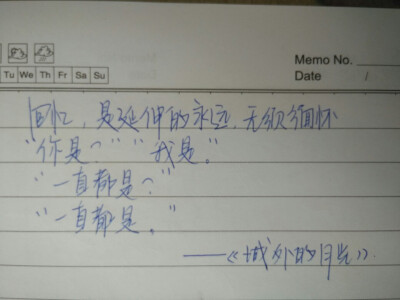 Memo No.
Tu We Th Fr Sa Su
Date /
回忆，是延伸的永远，无须缅怀
“你是？” “我是。”
“一直都是？”
“一直都是。”
——《城外的月光》